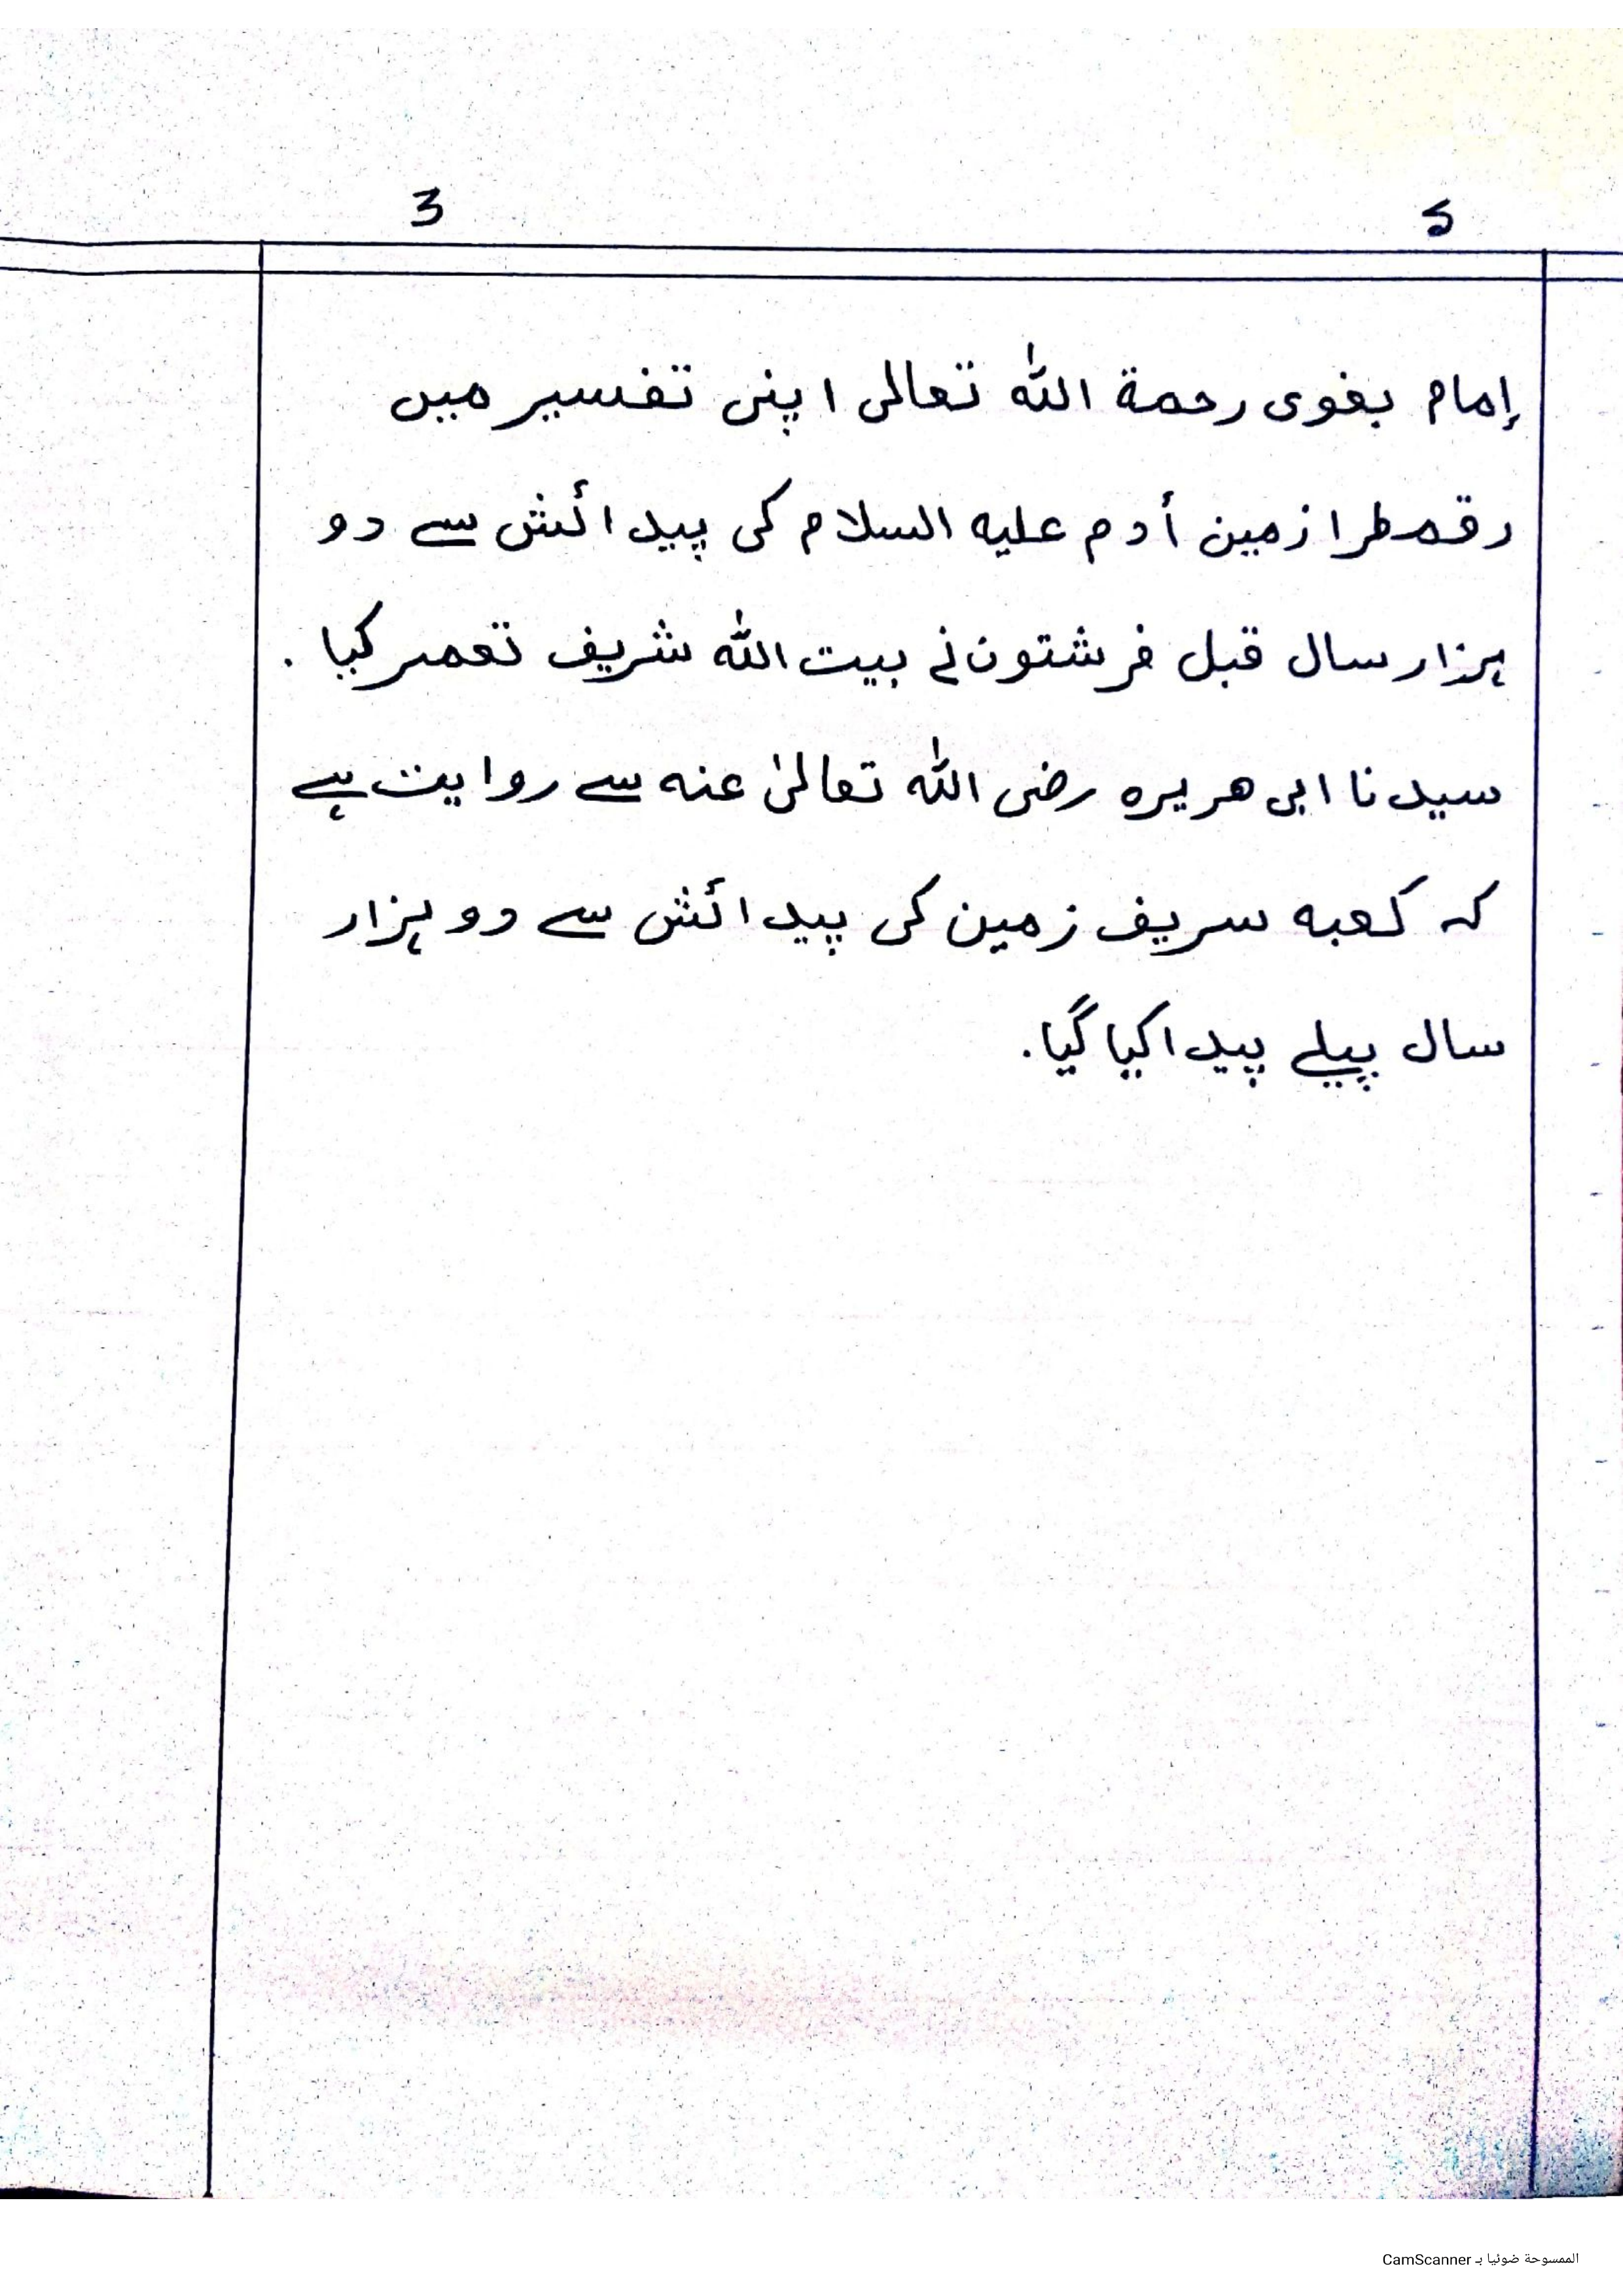 3 5
إمام بغوی رحمة الله تعالی اپنی تفسیر میں
رقمطرا زمین أدم علیه السلام کی پیدائش سے دو
ہزار سال قبل فرشتون نے بیت الله شریف تعمیر کیا .
سیدنا ابی هریرہ رضی الله تعالیٰ عنه سے روایت ہے
کہ کعبه سریف زمین کی پیدائش سے دو ہزار
سال پہلے پیدا کیا گیا.
الممسوحة ضوئيا بـ CamScanner